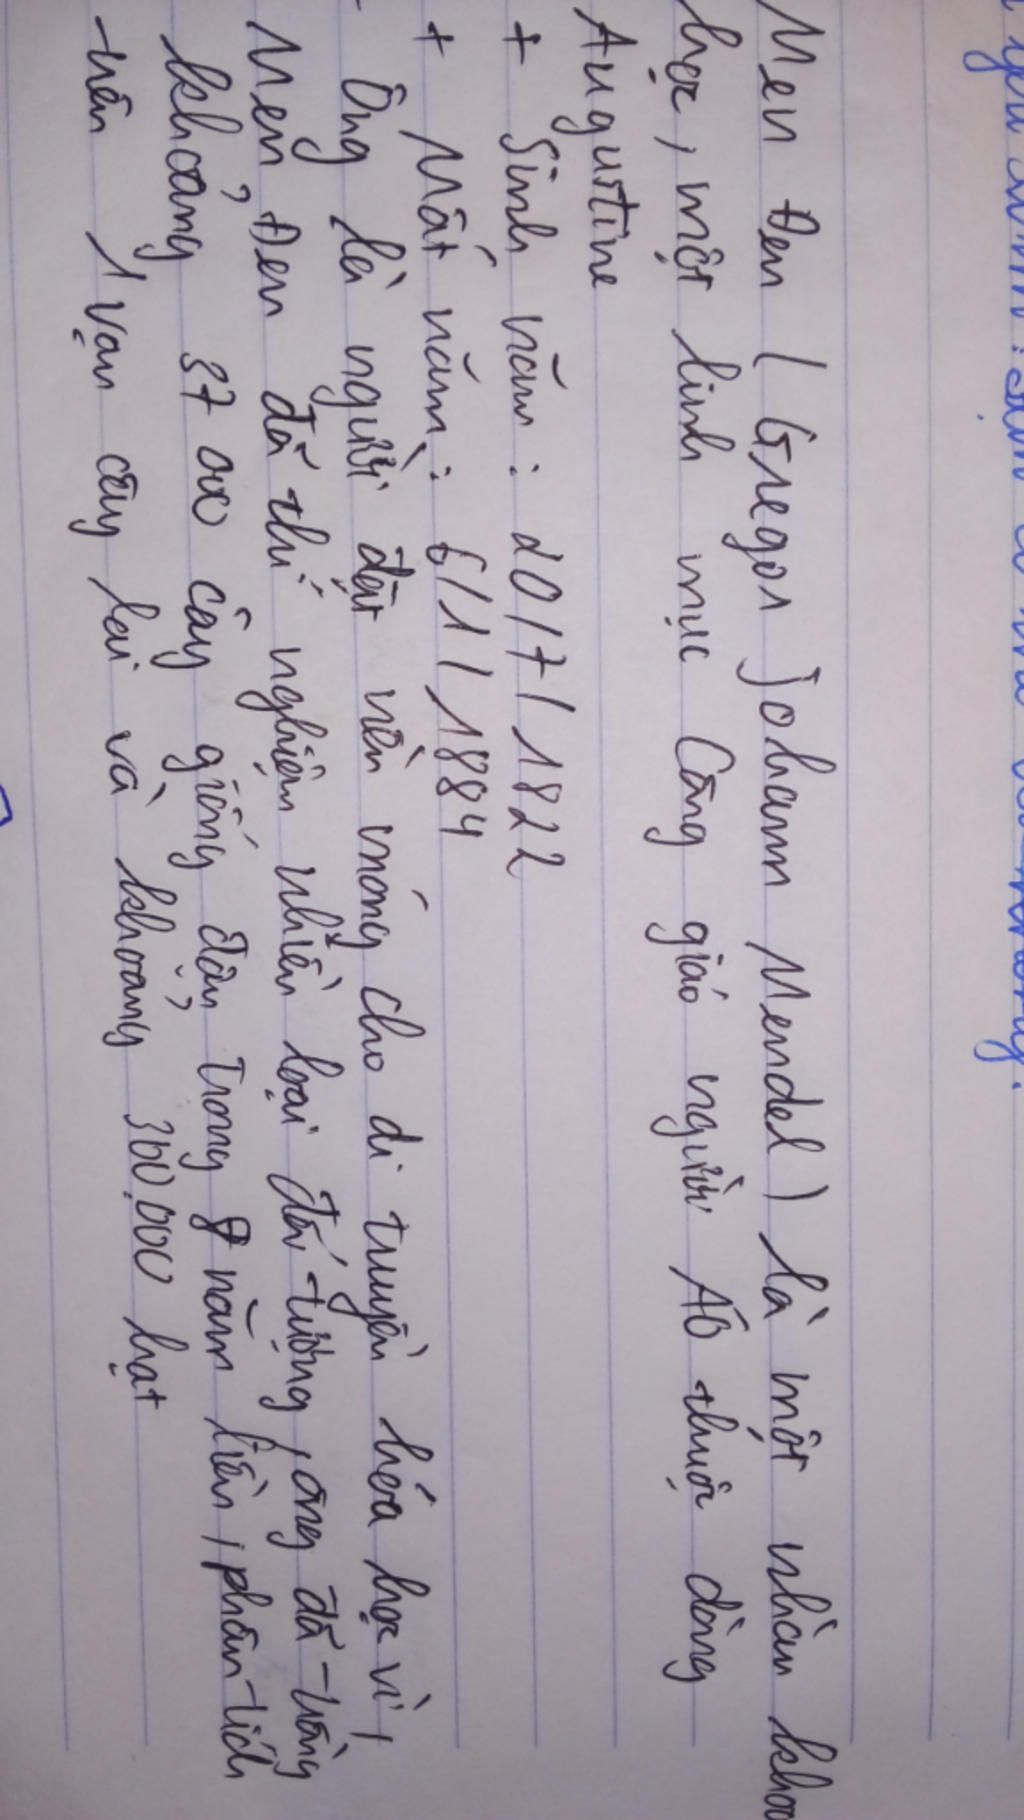 Men Đen ( Gregor Johann Mendel) là một nhàn khoa
học, một linh mục Công giáo người Áo thuộc dòng
Augustine
+ Sinh năm : 20/7/1822
+ Mất năm : 6/1/1884
- Ông là người đặt nền móng cho di truyền hóa học vì,
Men Đen đã thí nghiệm nhiều loại đối tượng, ông đã trồng
khoảng 37 000 cây giống đậu trong 8 năm liền, phân tích
trên 1 vạn cây lai và khoảng 300.000 hạt